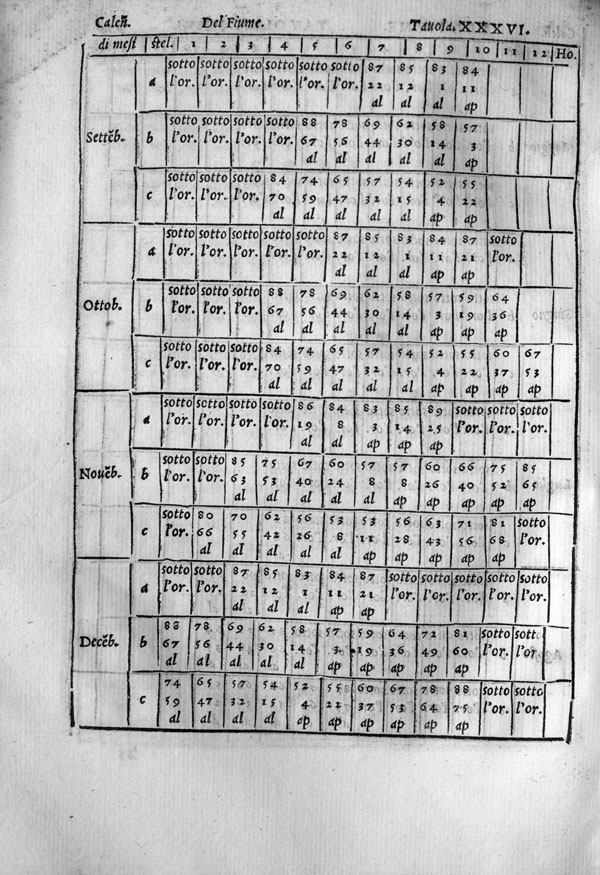 Caleñ. Del Fiume. Tavola. XXXVI.
di mesi stel. 1 2 3 4 5 6 7 8 9 10 11 12 Ho.
sotto sotto sotto sotto sotto sotto 87 85 83 84
a l'or. l'or. l'or. l'or. l'or. l'or. 22 12 1 11
al al al ap
sotto sotto sotto sotto 88 78 69 62 58 57
Settẽb. b l'or. l'or. l'or. l'or. 67 56 44 30 14 3
al al al al al ap
sotto sotto sotto 84 74 65 57 54 52 55
c l'or. l'or. l'or. 70 59 47 32 15 4 22
al al al al al ap ap
sotto sotto sotto sotto sotto 87 85 83 84 87 sotto
a l'or. l'or. l'or. l'or. l'or. 22 12 1 11 21 l'or.
al al al ap ap
sotto sotto sotto 88 78 69 62 58 57 59 64
Ottob. b l'or. l'or. l'or. 67 56 44 30 14 3 19 36
al al al al al ap ap ap
sotto sotto sotto 84 74 65 57 54 52 55 60 67
c l'or. l'or. l'or. 70 59 47 32 15 4 22 37 53
al al al al al ap ap ap ap
sotto sotto sotto sotto 86 84 83 85 89 sotto sotto sotto
a l'or. l'or. l'or. l'or. 19 8 3 14 25 l'or. l'or. l'or.
al al ap ap ap
sotto sotto 85 75 67 60 57 57 60 66 75 85
Nouẽb. b l'or. l'or. 63 53 40 24 8 8 26 40 52 65
al al al al al ap ap ap ap ap
sotto 80 70 62 56 53 53 56 63 71 81 sotto
c l'or. 66 55 42 26 8 11 28 43 56 68 l'or.
al al al al al ap ap ap ap ap
sotto sotto 87 85 83 84 87 sotto sotto sotto sotto sotto
a l'or. l'or. 22 12 1 11 21 l'or. l'or. l'or. l'or. l'or.
al al al ap ap
88 78 69 62 58 57 59 64 72 81 sotto sott
Decẽb. b 67 56 44 30 14 3 19 36 49 60 l'or. l'or
al al al al al ap ap ap ap ap
74 65 57 54 52 55 60 67 78 88 sotto sotto
c 59 47 32 15 4 22 37 53 64 75 l'or. l'or.
al al al al ap ap ap ap ap ap